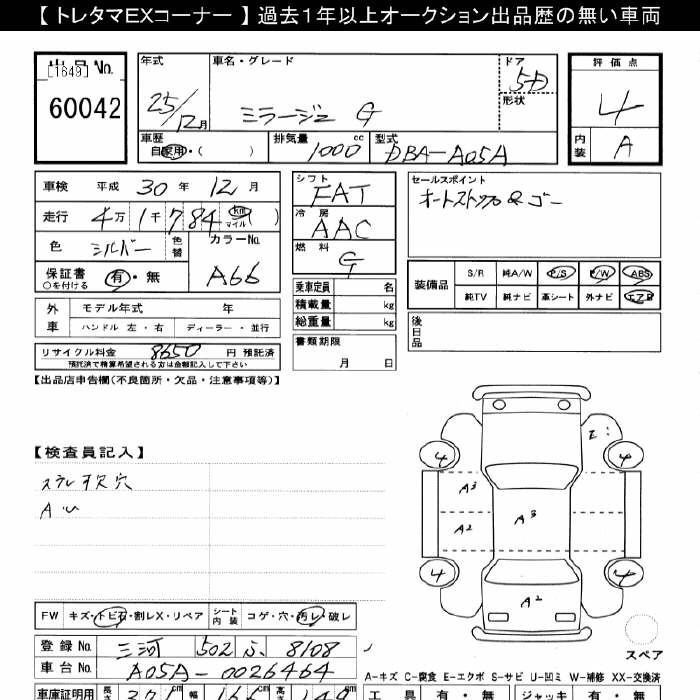 【 トレタマEXコーナー 】 過去１年以上オークション出品歴の無い車両
出品 No.
[1649]
60042
年式
25/12月
車名・グレード
ミラージュ G
ドア
5D
形状
評価点
4
内装 A
車歴
自家用・( )
排気量
1000 cc
型式
DBA-A05A
車検 平成 30 年 12 月
走行 4万 1千 784 km マイル
色 シルバー 色替
カラーNo. A66
保証書 ○を付ける 有・無
シフト FAT
冷房 AAC
燃料 G
セールスポイント
オートストップ&ゴー
乗車定員 名
積載量 kg
総重量 kg
装備品
S/R 純A/W P/S P/W ABS
純TV 純ナビ 革シート 外ナビ エアB
外車 モデル年式 年
ハンドル 左・右 ディーラー・並行
書類期限
月 日
後日品
リサイクル料金 8650 円 預託済
預託済で精算希望される方は金額記入して下さい
【出品店申告欄(不良箇所・欠品・注意事項等)】
【検査員記入】
A U
E
4 4
A3
A2 A3
4 4
A2
スペア
FW キズ・トビ石・割レX・リペア シート内装 コゲ・穴・汚レ・破レ
登録 No. 三河 502 ふ 8108
車台 No. A05A-0026464
A-キズ C-腐食 E-エクボ S-サビ U-凹ミ W-補修 XX-交換済
車庫証明用 長さ 371 cm 幅 166 cm 高さ 149 cm
工具 有・無 ジャッキ 有・無